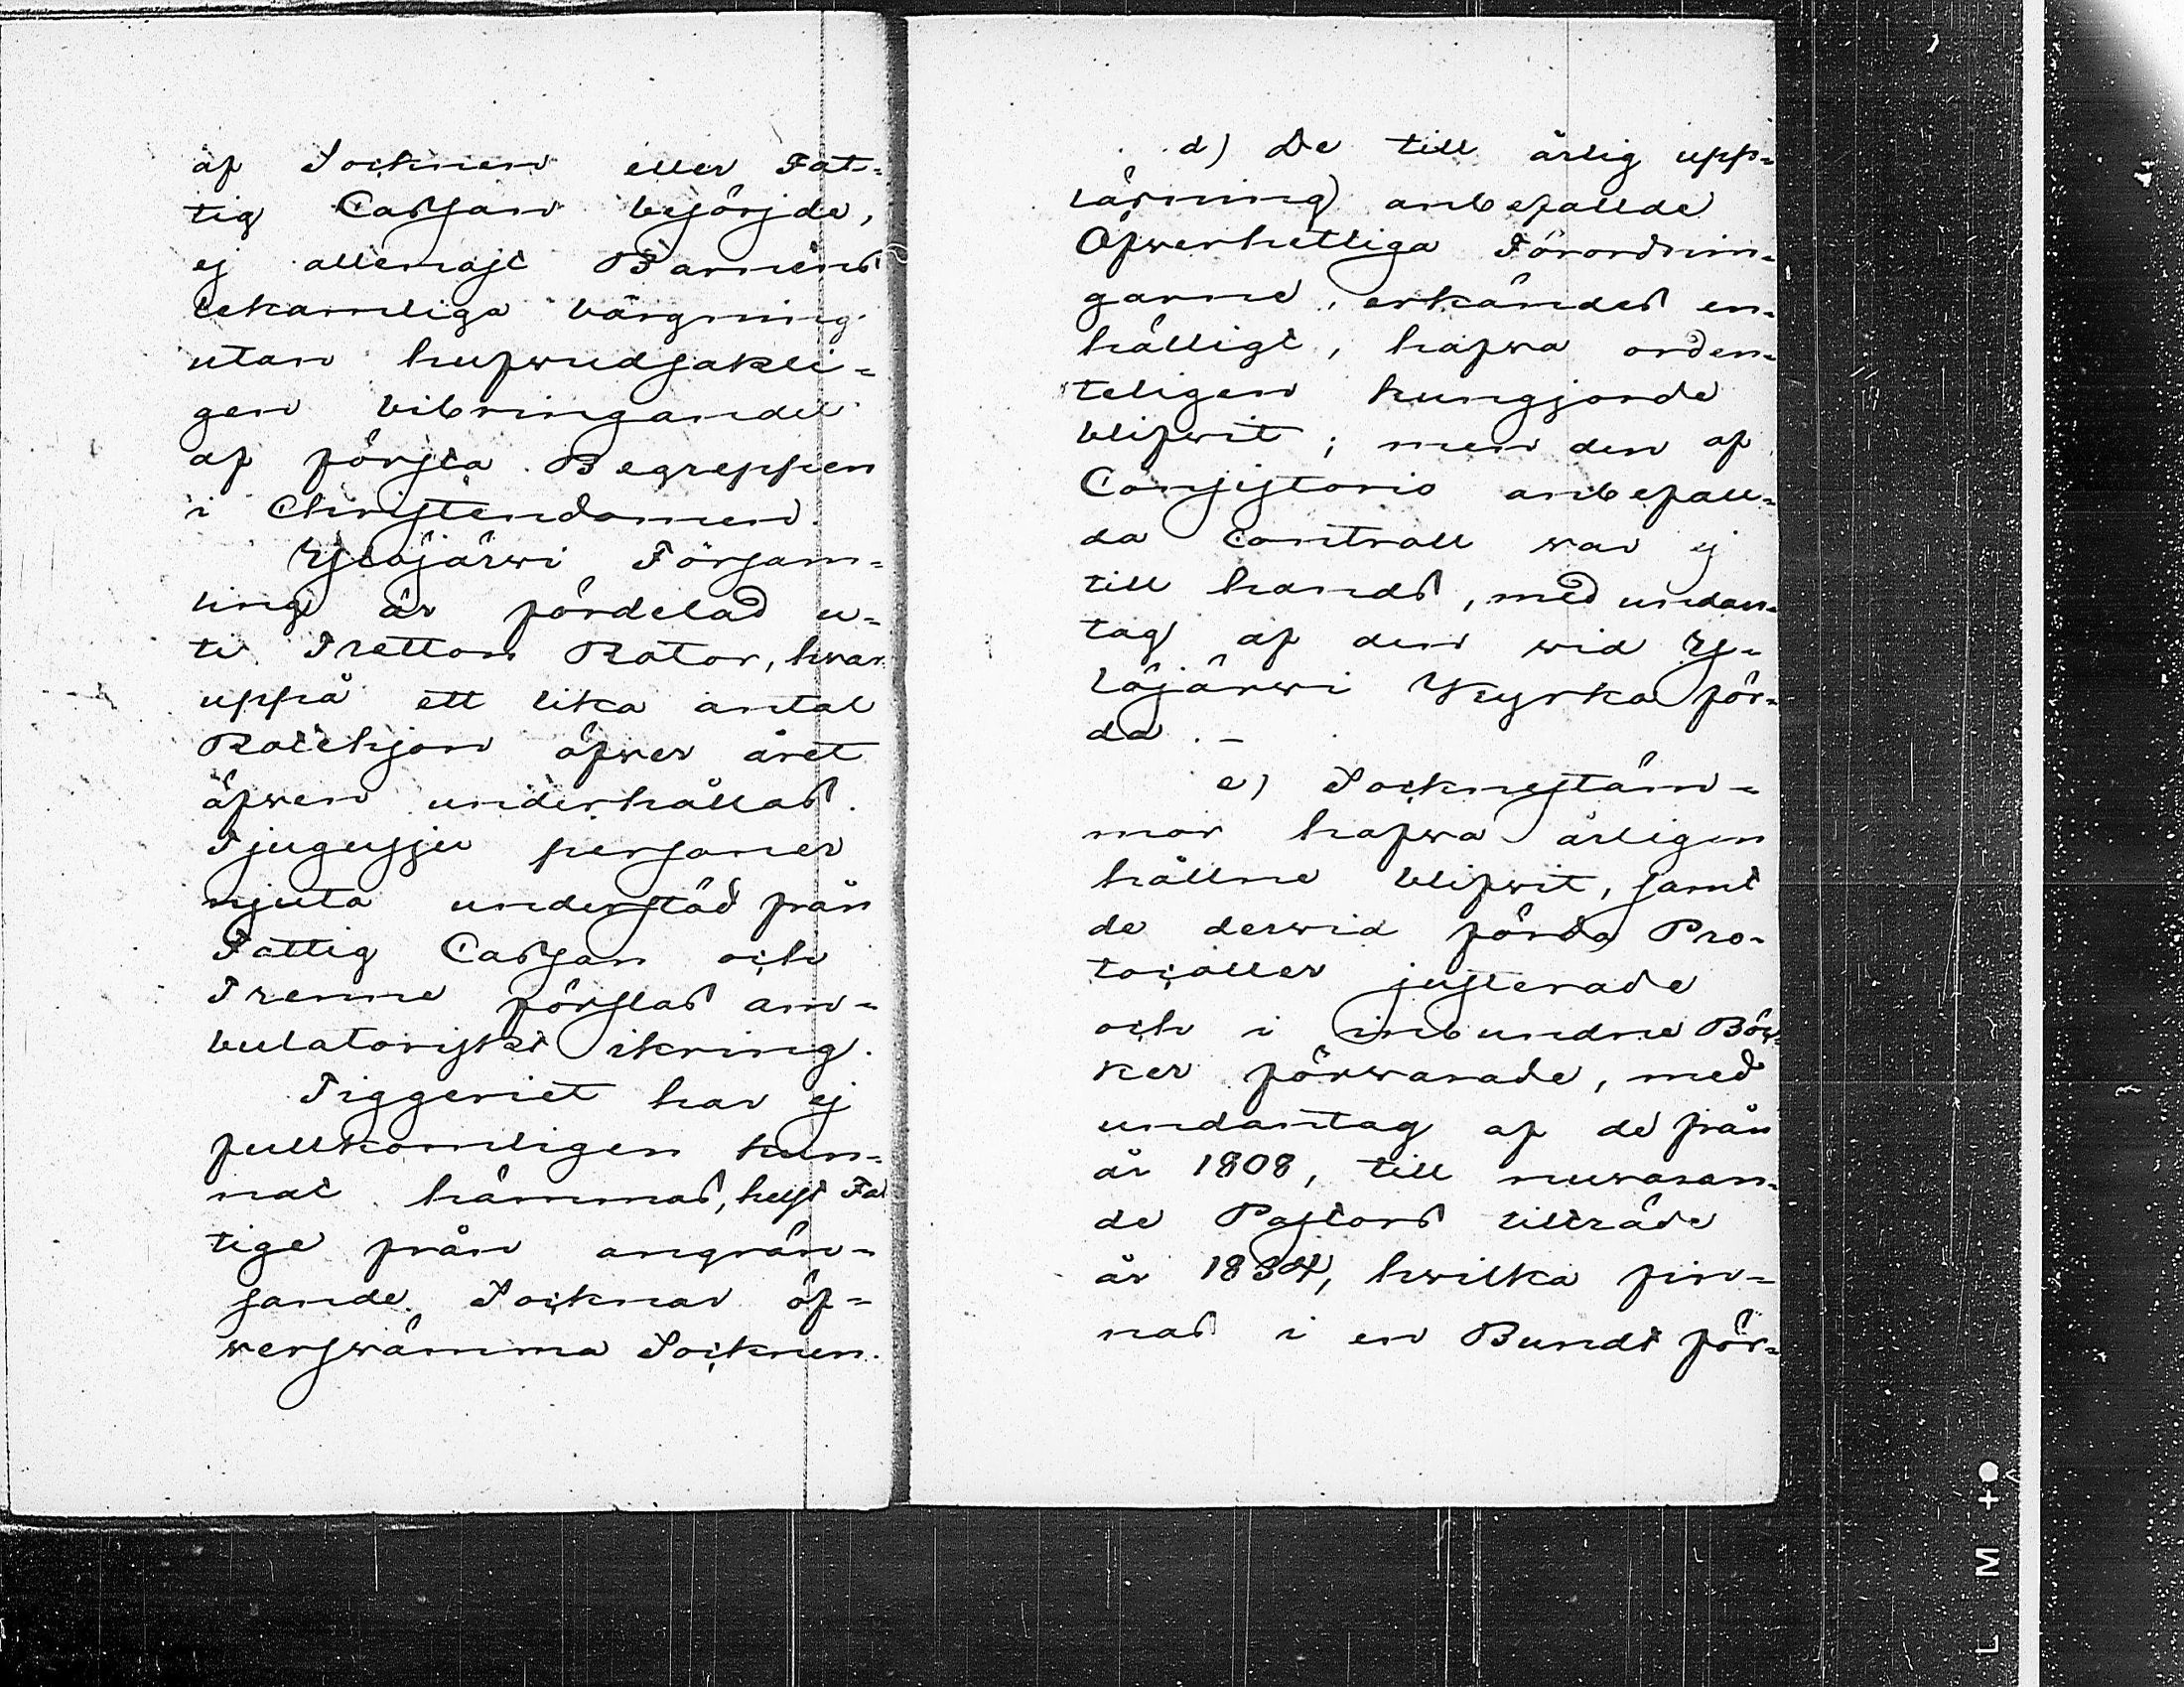 af Socknen eller Fat=
tig Cassan besörjde,
ej allenast Barnens
lekamliga bärgning
utan hufwudsakli=
gen bibringandet
af första Begreppen
i Christendomen.
Ylöjärwi Försam=
ling är fördelad u=
ti Tretton Rotor, hwar
uppå ett lika antal
Rotehjon öfwer året
äfwen underhållas.
Tjugusju personer
njuta understöd från
Fattig Cassan och
Trenne förslas am=
bulatoriskt ikring.
Tiggeriet har ej
fullkomligen kun=
nat hämmas, helst Fat
tige från angrän=
sande Socknar öf=
werswämma Socknen.
d) De till årlig upp=
läsning anbefallde
Öfwerhetliga Förordnin=
garne, erkändes en=
hälligt, hafwa orden=
teligen kungjorde
blifwit; men den af
Consistorio anbefall=
da Controll war ej
till hands, med undan=
tag af den wid Y=
löjärwi Kyrka för=
da. –
e) Socknestäm=
mor hafwa årligen
hållne blifwit, samt
de derwid förda Pro=
tocoller justerade
och i inbundne Böc=
ker förwarade, med
undantag af de från
år 1808, till nuwaran=
de Pastors tillträde
år 1834, hwilka fin=
nas i en Bundt för=
L M +